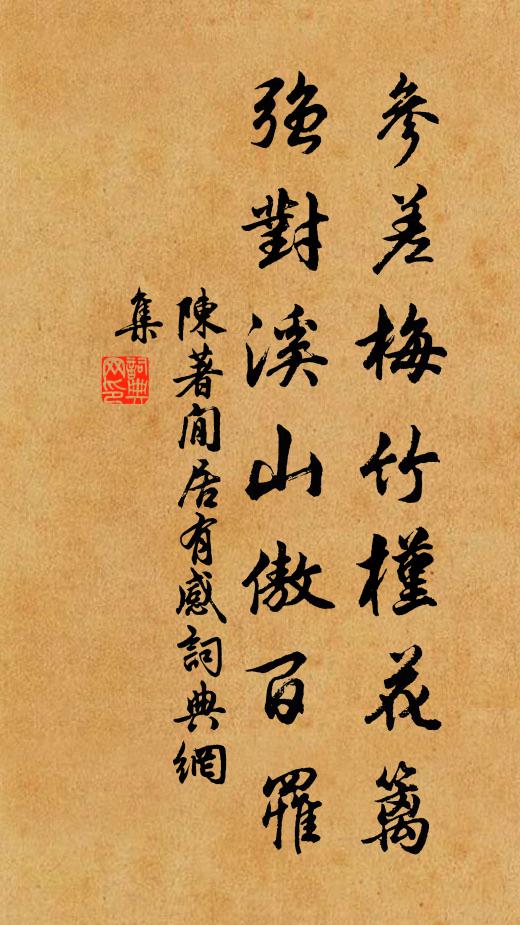 參差梅竹槿花籬
強對溪山傲百罹
陳著閒居有感詞典網
集
詞典
网印